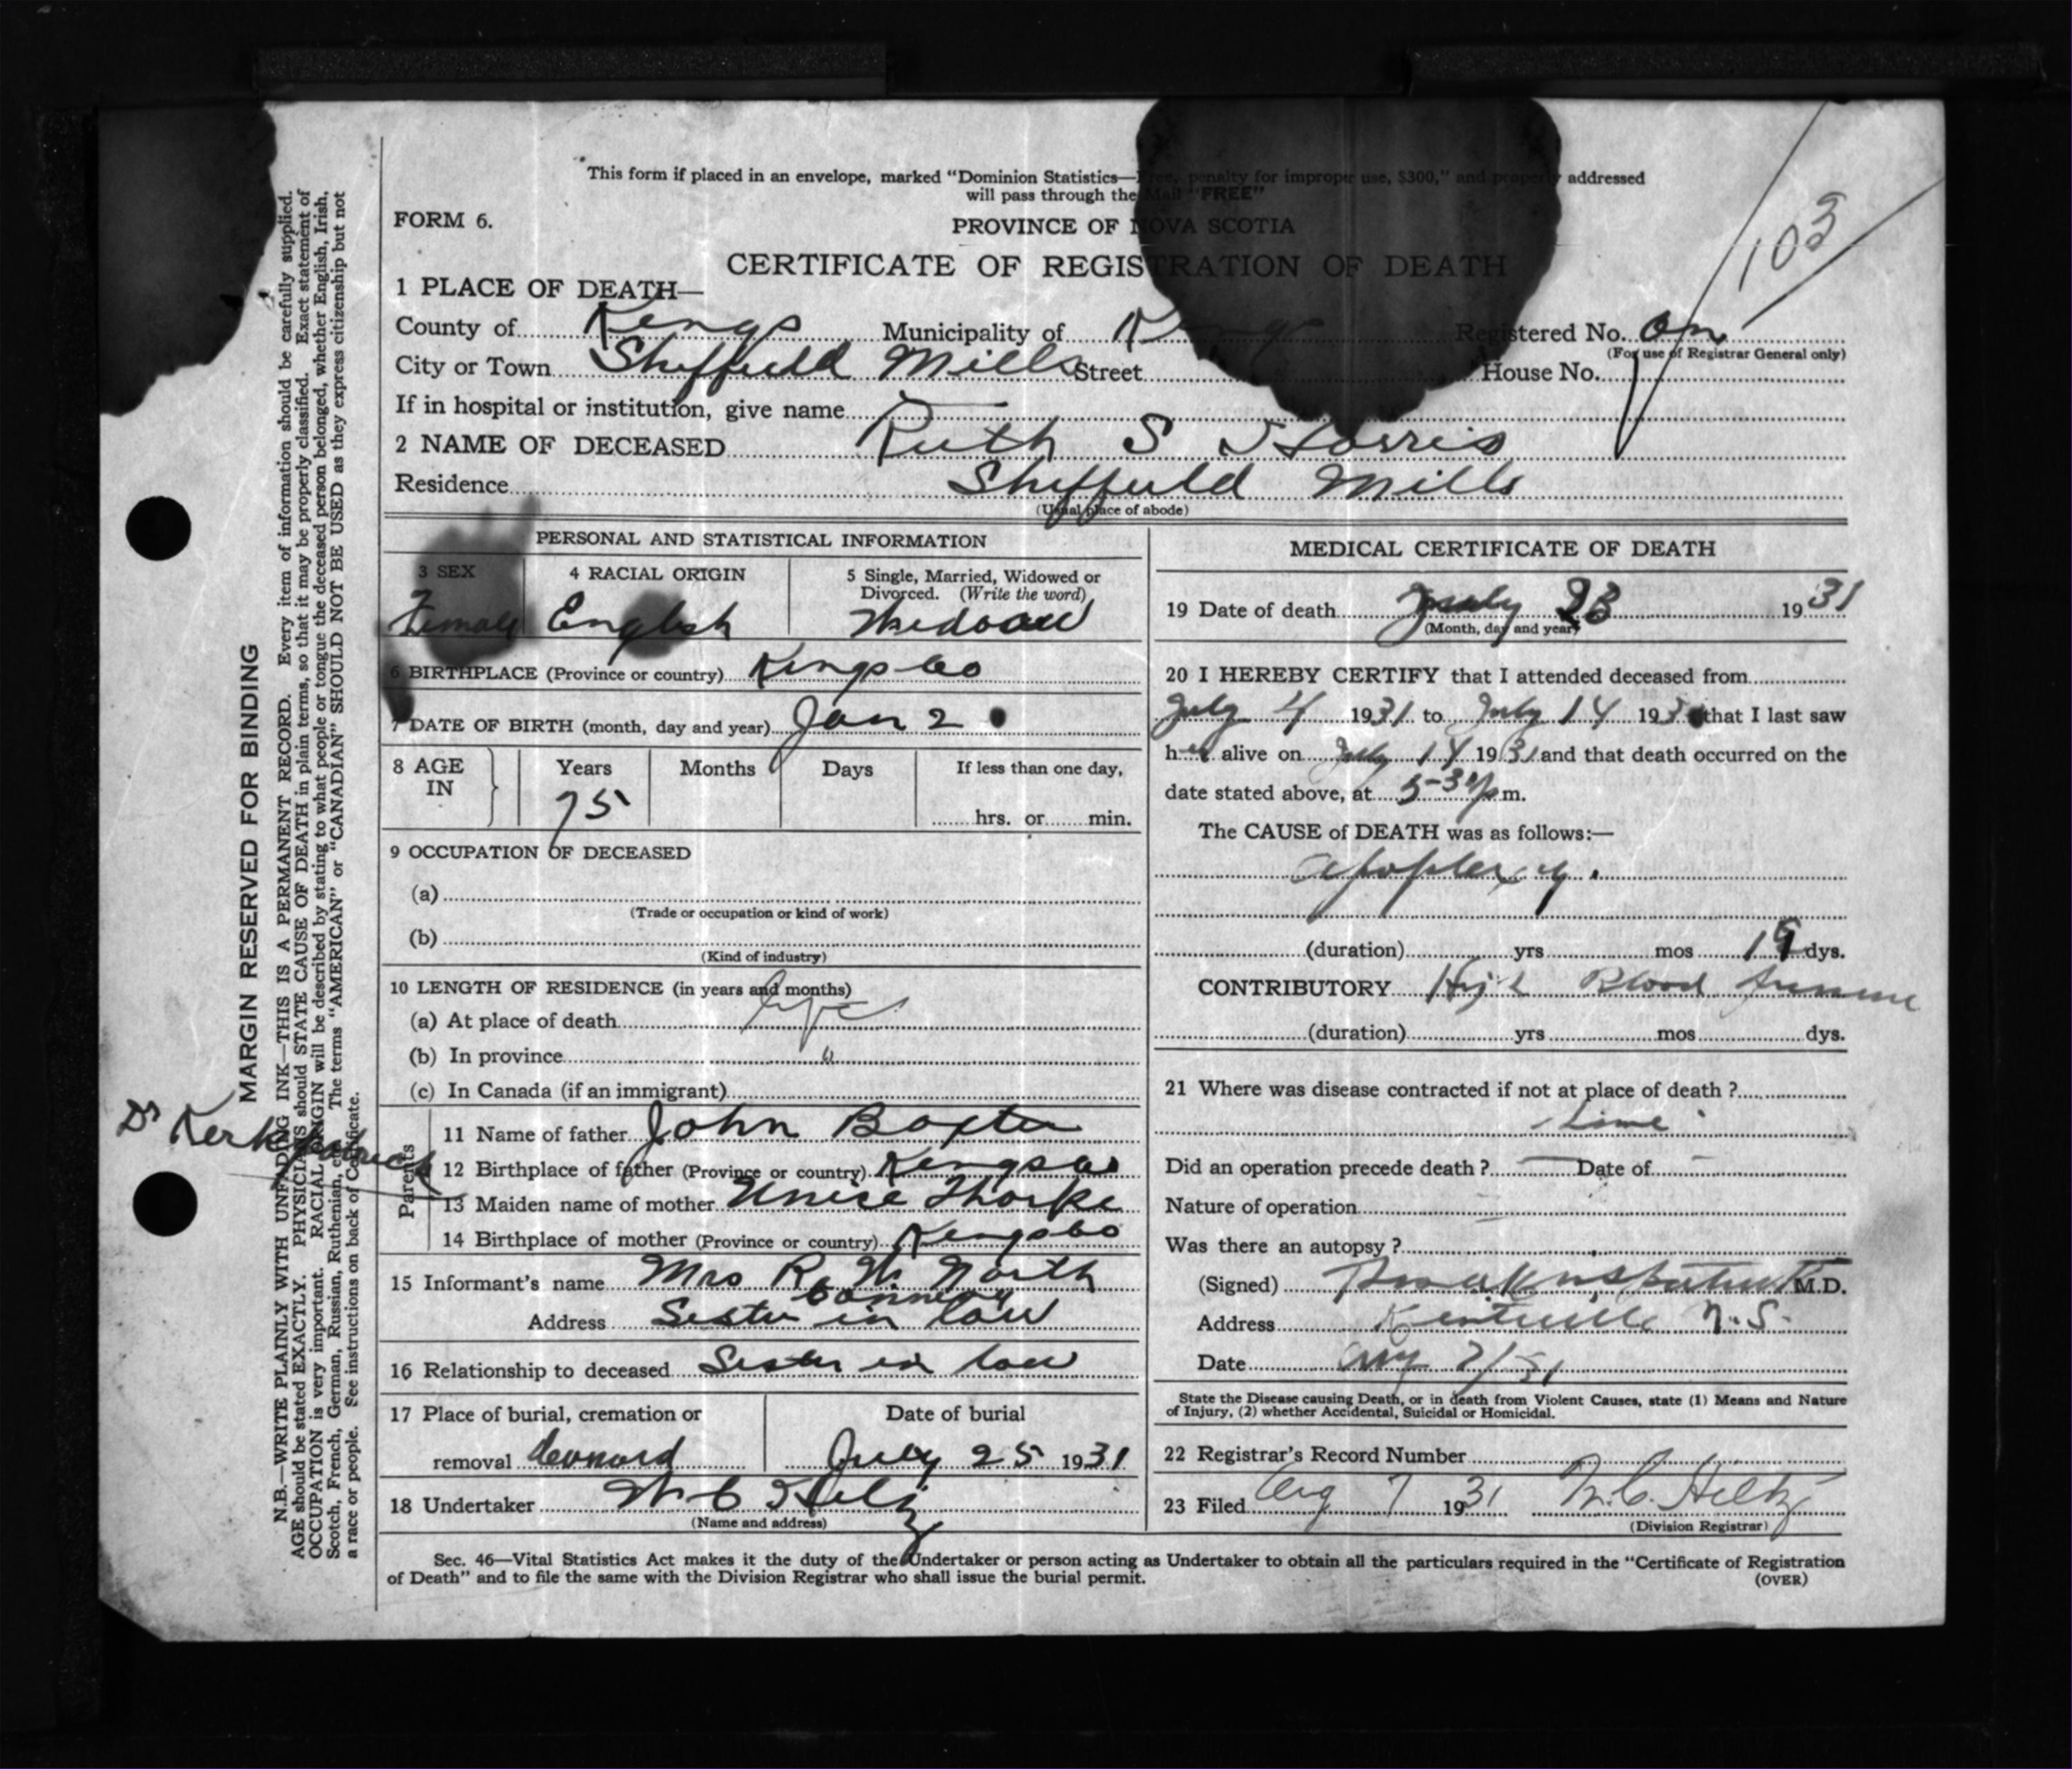 This form if placed in an envelope, marked "Dominion Statistics—Free, penalty for improper use, $300," and properly addressed
will pass through the Mail "FREE"
FORM 6.
PROVINCE OF NOVA SCOTIA
103
CERTIFICATE OF REGISTRATION OF DEATH
1 PLACE OF DEATH—
County of Kings Municipality of Kings Registered No.
(For use of Registrar General only)
City or Town Sheffield Mills Street House No.
If in hospital or institution, give name
2 NAME OF DECEASED Ruth S Harris
Residence Sheffield Mills
(Usual place of abode)
PERSONAL AND STATISTICAL INFORMATION
3 SEX 4 RACIAL ORIGIN 5 Single, Married, Widowed or
Divorced. (Write the word)
Female English Widow
6 BIRTHPLACE (Province or country) Kings Co
7 DATE OF BIRTH (month, day and year) Jan 2
8 AGE IN Years Months Days If less than one day,
75 hrs. or min.
9 OCCUPATION OF DECEASED
(a)
(Trade or occupation or kind of work)
(b)
(Kind of industry)
10 LENGTH OF RESIDENCE (in years and months)
(a) At place of death life
(b) In province "
(c) In Canada (if an immigrant)
Parents
11 Name of father John Baxter
12 Birthplace of father (Province or country) Kings Co
13 Maiden name of mother Unice Thorpe
14 Birthplace of mother (Province or country) Kings Co
15 Informant's name Mrs R. W. North
Address Sister in law
16 Relationship to deceased Sister in law
17 Place of burial, cremation or Date of burial
removal July 25 1931
18 Undertaker W C Hiltz
(Name and address)
MEDICAL CERTIFICATE OF DEATH
19 Date of death July 23 1931
(Month, day and year)
20 I HEREBY CERTIFY that I attended deceased from
July 4 1931 to July 14 193 that I last saw
her alive on July 14 1931 and that death occurred on the
date stated above, at 5-30 p.m.
The CAUSE of DEATH was as follows:—
apoplexy.
(duration) yrs mos 19 dys.
CONTRIBUTORY High Blood Pressure
(duration) yrs mos dys.
21 Where was disease contracted if not at place of death ?
Did an operation precede death ? — Date of —
Nature of operation
Was there an autopsy ?
(Signed) M.D.
Address Kentville N.S.
Date Aug 7/31
State the Disease causing Death, or in death from Violent Causes, state (1) Means and Nature
of Injury, (2) whether Accidental, Suicidal or Homicidal.
22 Registrar's Record Number
23 Filed Aug 7 1931 W. C. Hiltz
(Division Registrar)
Sec. 46—Vital Statistics Act makes it the duty of the Undertaker or person acting as Undertaker to obtain all the particulars required in the "Certificate of Registration
of Death" and to file the same with the Division Registrar who shall issue the burial permit.
(OVER)
MARGIN RESERVED FOR BINDING
N.B.—WRITE PLAINLY WITH UNFADING INK—THIS IS A PERMANENT RECORD. Every item of information should be carefully supplied.
AGE should be stated EXACTLY. PHYSICIANS should STATE CAUSE OF DEATH in plain terms, so that it may be properly classified. Exact statement of
OCCUPATION is very important. RACIAL ORIGIN will be described by stating to what people or tongue the deceased person belonged, whether English, Irish,
Scotch, French, German, Russian, Ruthenian, etc. The terms "AMERICAN" or "CANADIAN" SHOULD NOT BE USED as they express citizenship but not
a race or people. See instructions on back of Certificate.
Dr Kerkpatrick